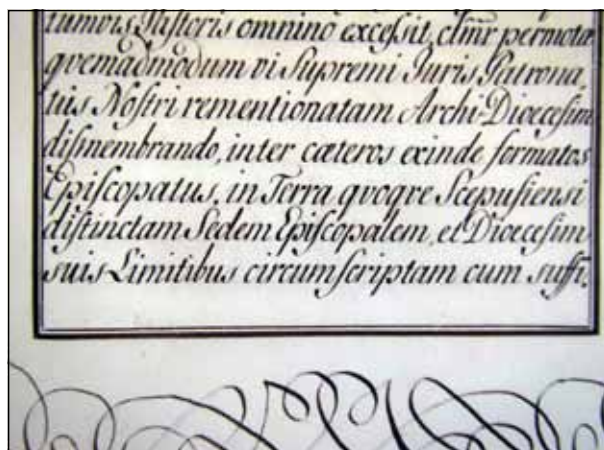 tumvis Paſtoris omnino exceſsit, clm̄r permotæ
qvemadmodum vi Supremi Juris Patrona,
tûs Noſtri rementionatam Archi-Dioeceſim
diſmembrando, inter cæteros exinde formatos
Epiſcopatus, in Terra qvoqve Scepuſiensi
diſtinctam Sedem Epiſcopalem, et Dioeceſim
suis Limitibus circumſcriptam cum suffi,